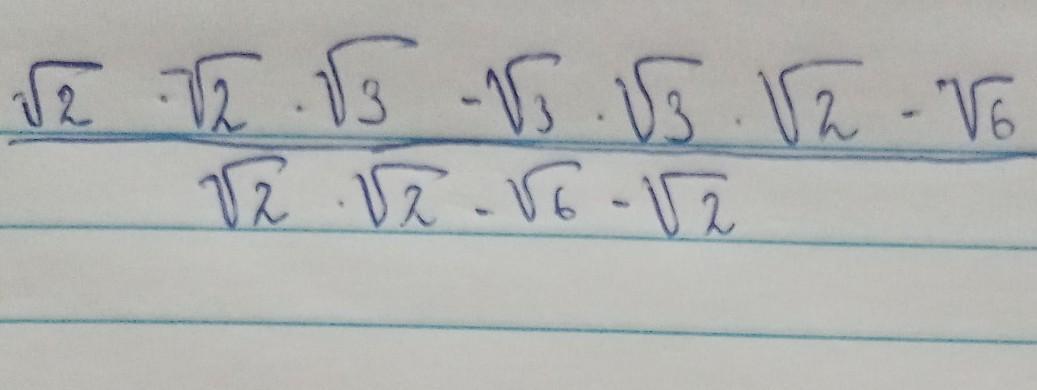 √2 · √2 · √3 - √3 · √3 · √2 - √6
√2 · √2 - √6 - √2